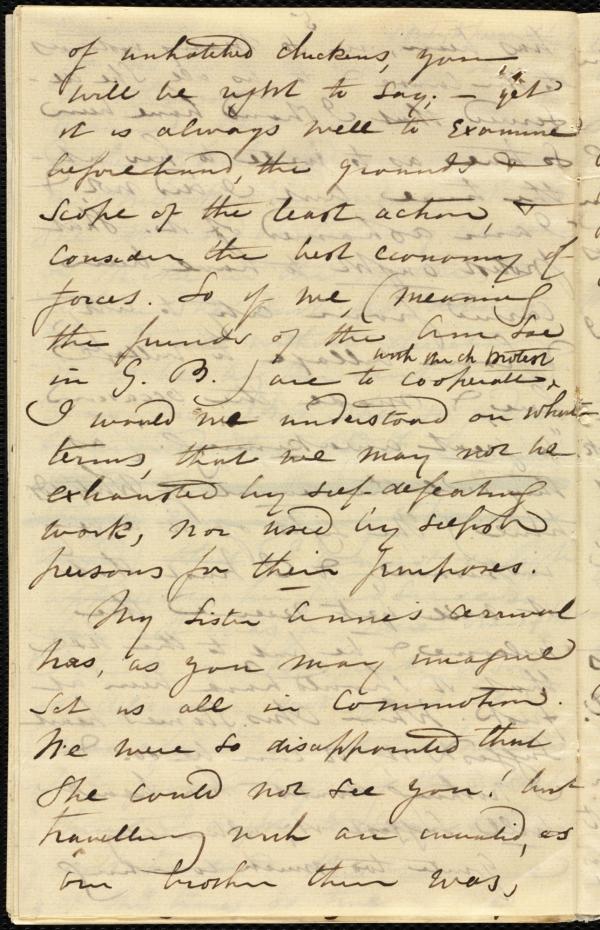 of unhatched chickens, you
will be right to say; — yet
it is always well to examine
beforehand, the grounds &
scope of the least action, &
consider the best economy of
forces. So if we, (meaning
the friends of the Am Soc
with such protest
in G. B.) are to cooperate,
I would we understood on what
terms, that we may not be
exhausted by self-defeating
work, nor used by selfish
persons for their purposes.
My sister Anne's arrival
has, as you may imagine
set us all in commotion.
We were so disappointed that
she could not see you! but
travelling with an invalid, as
our brother then was,